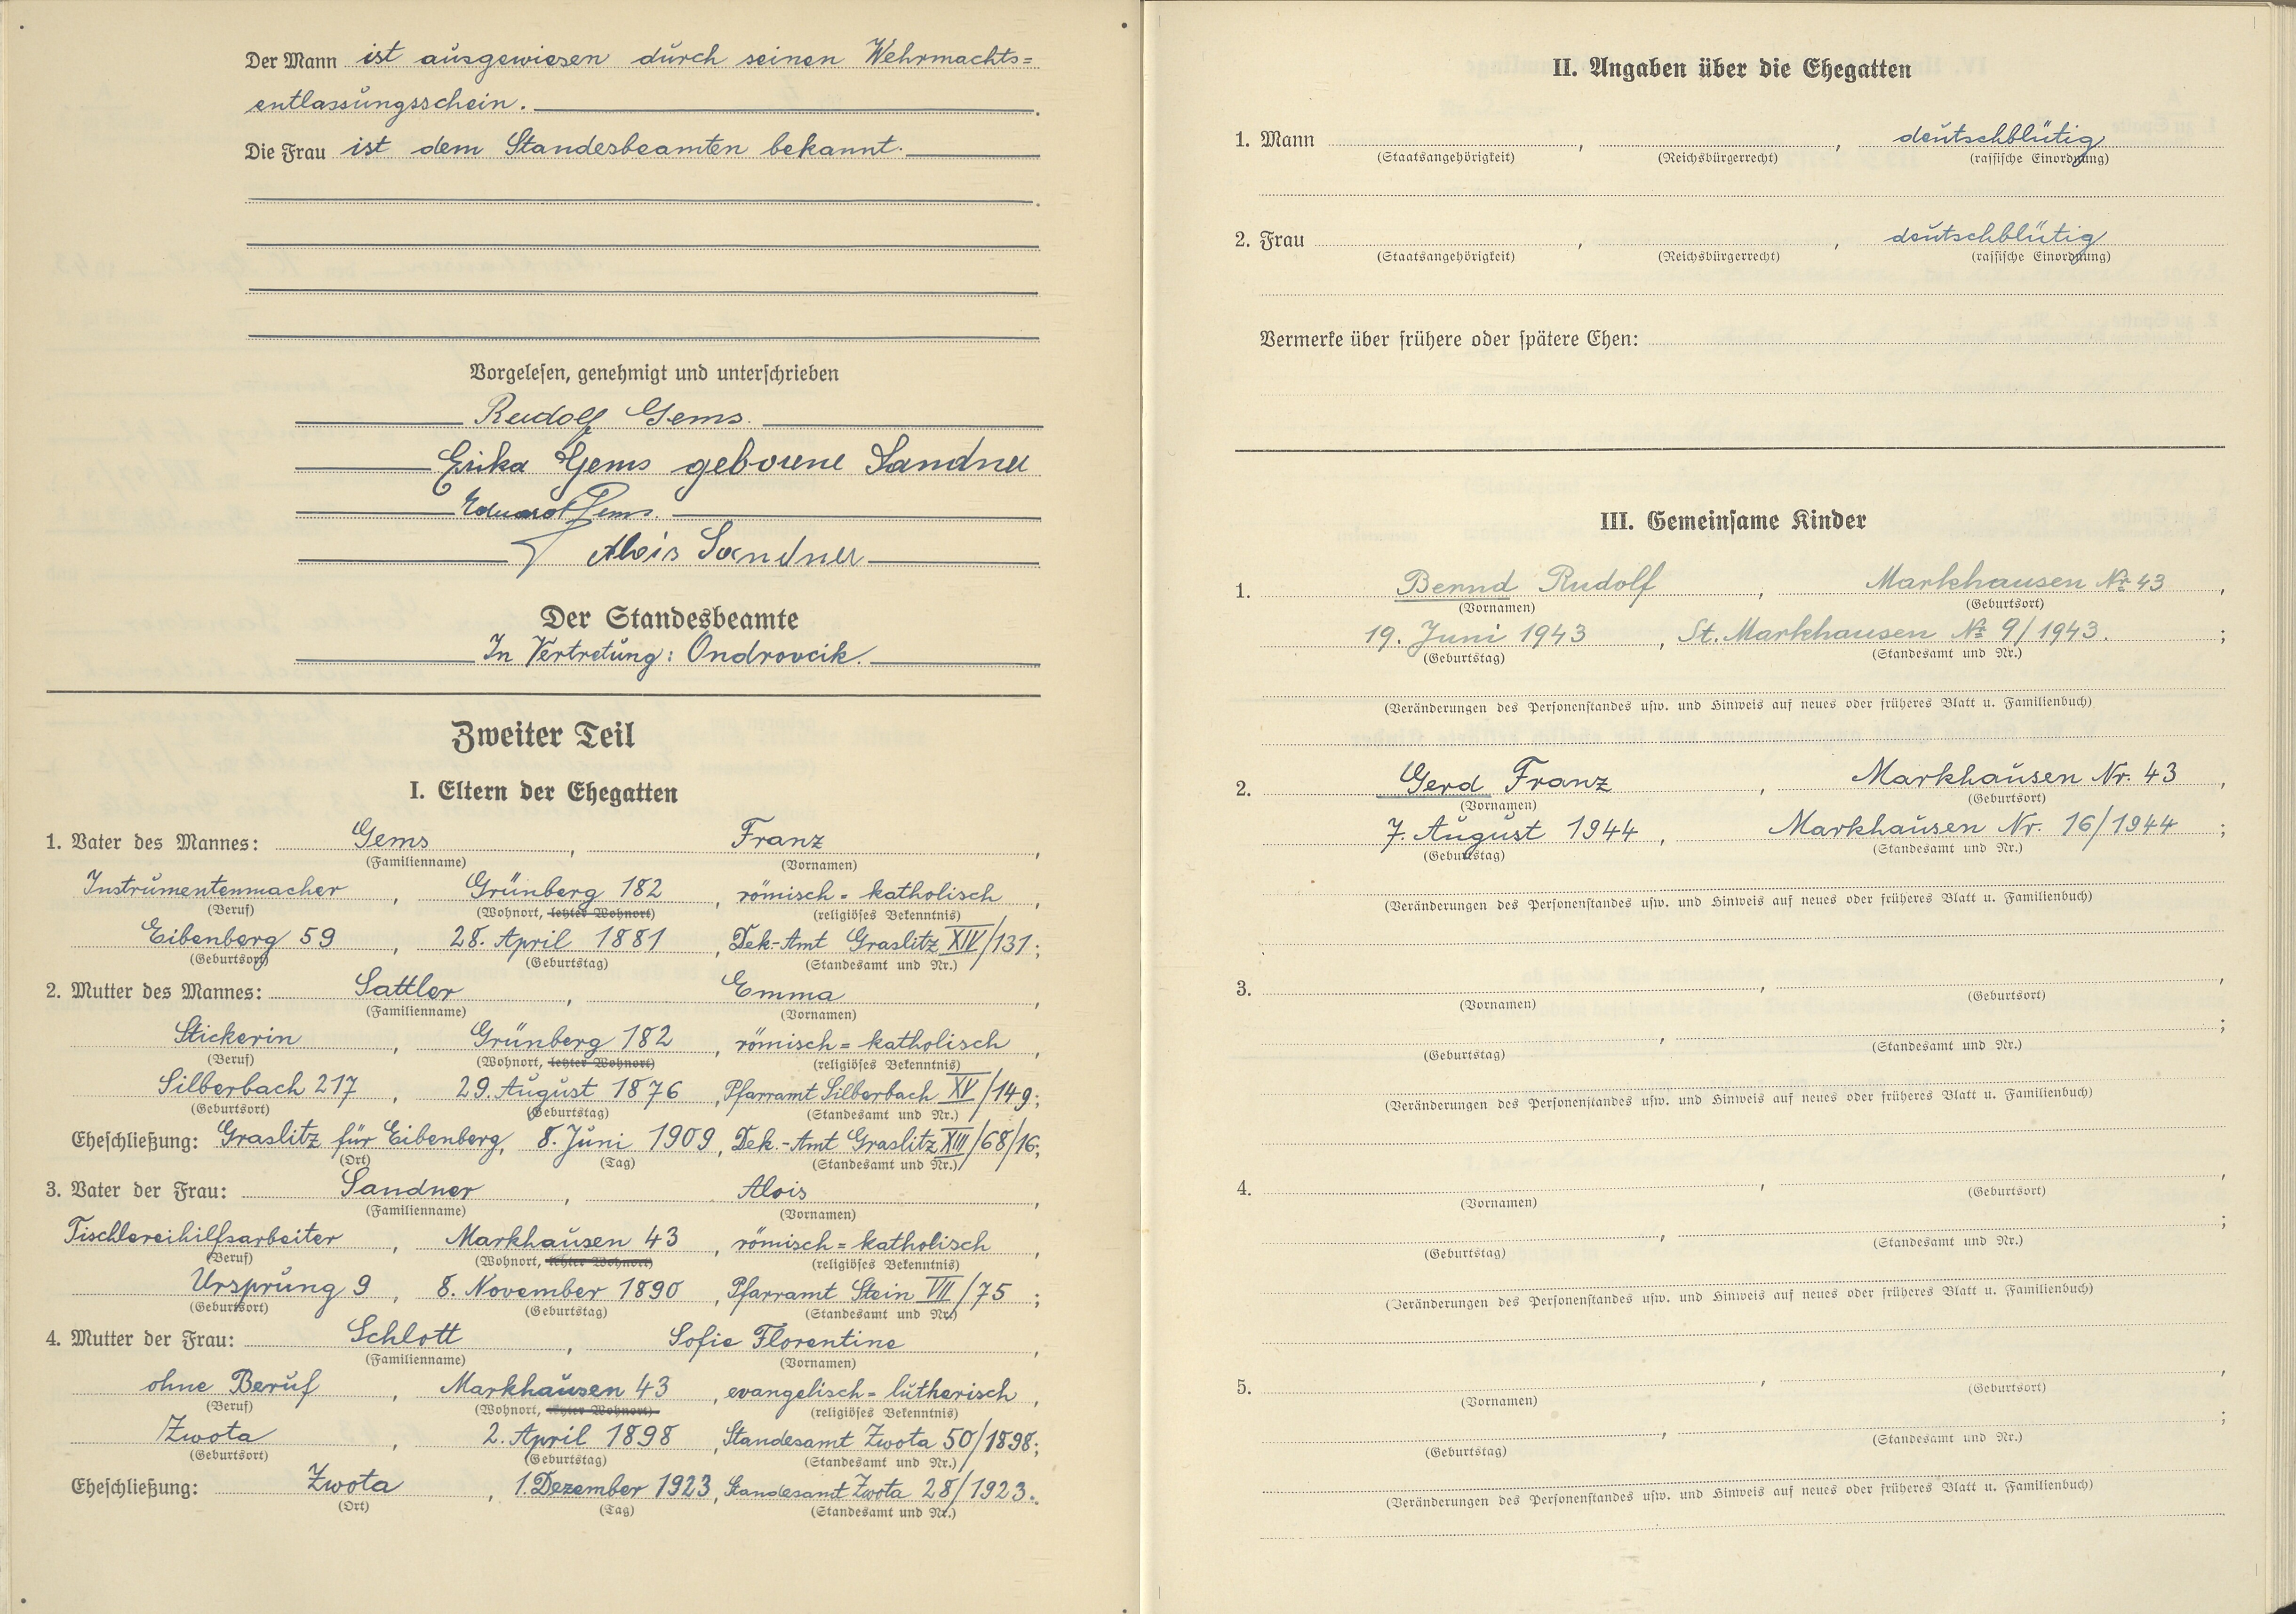 Der Mann ist ausgewiesen durch seinen Wehrmachts=
entlassungsschein.
Die Frau ist dem Standesbeamten bekannt.
Vorgelesen, genehmigt und unterschrieben
Rudolf Gems.
Erika Gems geborene Sandner
Eduard Gems.
Alois Sandner
Der Standesbeamte
In Vertretung: Ondrovcik.
Zweiter Teil
I. Eltern der Ehegatten
1. Vater des Mannes: Gems, Franz,
(Familienname) (Vornamen)
Instrumentenmacher, Grünberg 182, römisch=katholisch,
(Beruf) (Wohnort, letzter Wohnort) (religiöses Bekenntnis)
Eibenberg 59, 28. April 1881, Dek.-Amt Graslitz XIV/131;
(Geburtsort) (Geburtstag) (Standesamt und Nr.)
2. Mutter des Mannes: Sattler, Emma,
(Familienname) (Vornamen)
Stickerin, Grünberg 182, römisch=katholisch,
(Beruf) (Wohnort, letzter Wohnort) (religiöses Bekenntnis)
Silberbach 217, 29. August 1876, Pfarramt Silberbach XV/149;
(Geburtsort) (Geburtstag) (Standesamt und Nr.)
Eheschließung: Graslitz für Eibenberg, 8. Juni 1909, Dek.-Amt Graslitz XIII/68/16;
(Ort) (Tag) (Standesamt und Nr.)
3. Vater der Frau: Sandner, Alois,
(Familienname) (Vornamen)
Tischlereihilfsarbeiter, Markhausen 43, römisch=katholisch,
(Beruf) (Wohnort, letzter Wohnort) (religiöses Bekenntnis)
Ursprung 9, 8. November 1890, Pfarramt Stein VII/75;
(Geburtsort) (Geburtstag) (Standesamt und Nr.)
4. Mutter der Frau: Schlott, Sofie Florentine,
(Familienname) (Vornamen)
ohne Beruf, Markhausen 43, evangelisch=lutherisch,
(Beruf) (Wohnort, letzter Wohnort) (religiöses Bekenntnis)
Zwota, 2. April 1898, Standesamt Zwota 50/1898;
(Geburtsort) (Geburtstag) (Standesamt und Nr.)
Eheschließung: Zwota, 1. Dezember 1923, Standesamt Zwota 28/1923.
(Ort) (Tag) (Standesamt und Nr.)
II. Angaben über die Ehegatten
1. Mann , , deutschblütig
(Staatsangehörigkeit) (Reichsbürgerrecht) (rassische Einordnung)
2. Frau , , deutschblütig
(Staatsangehörigkeit) (Reichsbürgerrecht) (rassische Einordnung)
Vermerke über frühere oder spätere Ehen:
III. Gemeinsame Kinder
1. Bernd Rudolf, Markhausen № 43,
(Vornamen) (Geburtsort)
19. Juni 1943, St. Markhausen № 9/1943.;
(Geburtstag) (Standesamt und Nr.)
(Veränderungen des Personenstandes usw. und Hinweis auf neues oder früheres Blatt u. Familienbuch)
2. Gerd Franz, Markhausen Nr. 43,
(Vornamen) (Geburtsort)
7. August 1944, Markhausen Nr. 16/1944;
(Geburtstag) (Standesamt und Nr.)
(Veränderungen des Personenstandes usw. und Hinweis auf neues oder früheres Blatt u. Familienbuch)
3. , ,
(Vornamen) (Geburtsort)
, ;
(Geburtstag) (Standesamt und Nr.)
(Veränderungen des Personenstandes usw. und Hinweis auf neues oder früheres Blatt u. Familienbuch)
4. , ,
(Vornamen) (Geburtsort)
, ;
(Geburtstag) (Standesamt und Nr.)
(Veränderungen des Personenstandes usw. und Hinweis auf neues oder früheres Blatt u. Familienbuch)
5. , ,
(Vornamen) (Geburtsort)
, ;
(Geburtstag) (Standesamt und Nr.)
(Veränderungen des Personenstandes usw. und Hinweis auf neues oder früheres Blatt u. Familienbuch)